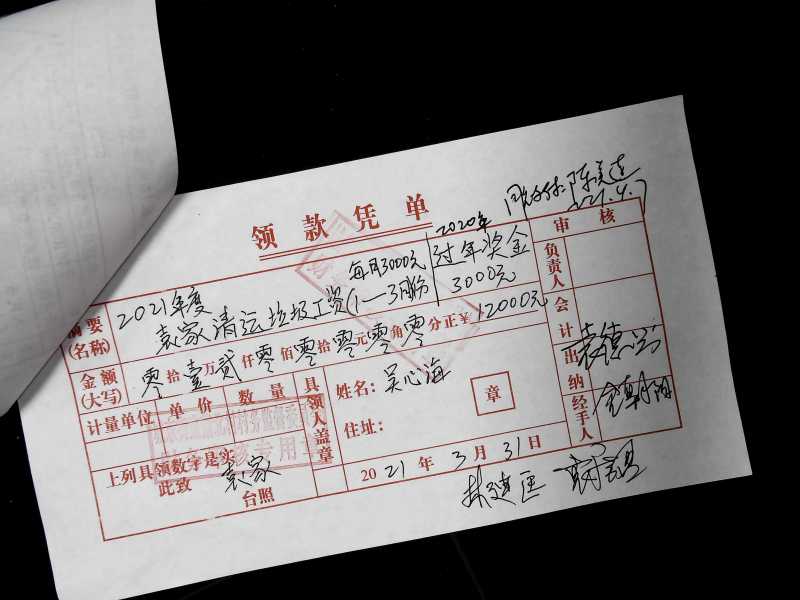 领款凭单
同意付款 陈美连
2021.4.7
摘要
(名称)
2021年度
袁家清运垃圾工资(1—3月份
每月3000元
2020年
过年奖金
3000元
审核
负责人
会计
出纳
经手人
金额
(大写)
零拾壹万贰仟零佰零拾零元零角零分正¥12000元
计量单位 单价 数量 具领人盖章
姓名: 吴心海
章
住址:
上列具领数字是实
此致
袁家
台照
2021年3月31日